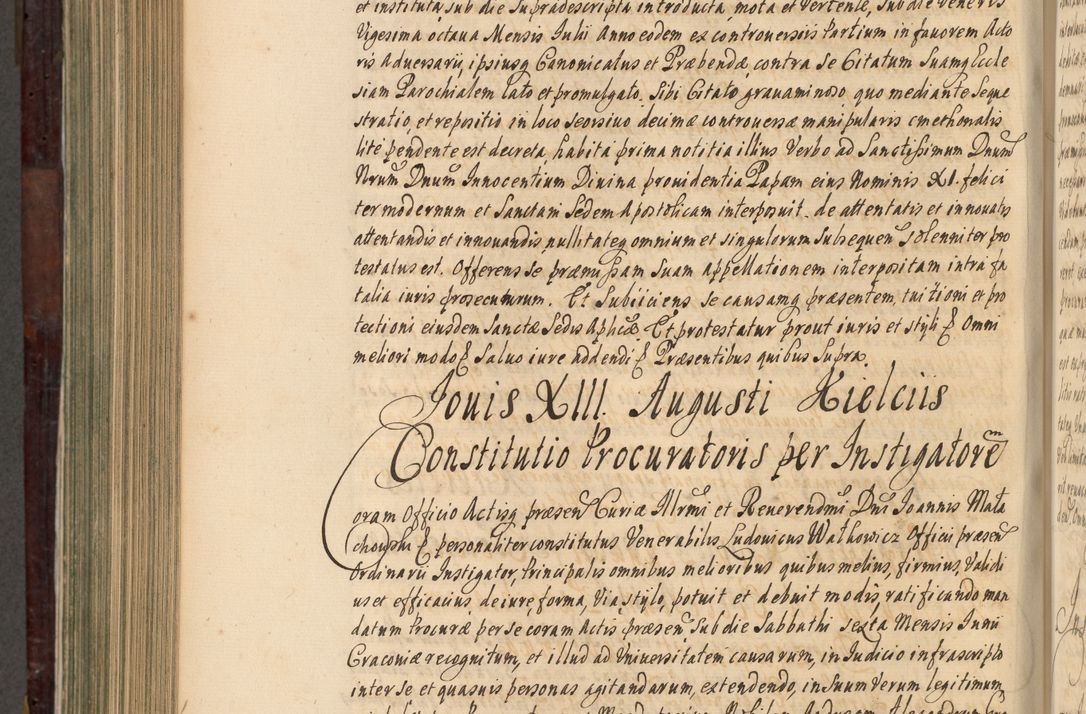 et instituta, sub die supradescripta introducta, mota et vertente, sub die Veneris
Vigesima octaua Mensis Iulii Anno eodem ex controuersiis Partium in fauorem Acto
ris Aduersarij, ipsiusq Canonicatus et Præbendæ, contra se Citatum Suamq Eccle
siam Parochialem lato et promulgato. Sibi Citato grauaminoso, quo mediante Seque
stratio, et repositio in loco seorsiuo decimæ controuersæ manipularis cmethonalis
lite pendente est decreta, habita prima notitia illius Verbo ad Sanctissimum Dnum
Nrum Dnum Innocentium Diuina prouidentia Papam eius Nominis XI. felici
ter modernum et Sanctam Sedem Apostolicam interposuit. de attentatis et innouatis
attentandis et innouandis, nullitateq omnium et singulorum subsequen solenniter pro
testatus est. Offerens se præmissam suam appellationem interpositam intra fa
talia iuris prosecuturum. Et Subiiciens se causamq præsentem, tuitioni et pro
tectioni eiusdem Sanctæ Sedis Aplicæ Et protestatur prout iuris et styli Omni
meliori modo Saluo iure addendi Præsentibus quibus Supra
Jouis XIII. Augusti Kielciis
Constitutio Procuratoris per Instigatorem
Coram Officio Actisq præsen Curiæ Illrmi et Reuerendmi Dni Ioannis Mała
chowski personaliter constitutus Venerabilis Ludouicus Wałkowicz Officii præsen
Ordinarii Instigator, Principalis omnibus melioribus quibus melius, firmius, Validi
us et efficacius, de iure, forma, Via, stylo, potuit et debuit modis, ratificando man
datum Procuræ per se coram Actis præsen Sub die Sabbathi sexta Mensis Iunii
Cracouiæ recognitum, et illud ad Vniuersitatem causarum, in Iudicio infrascripto
inter se et quasuis personas agitandarum, extendendo, in suum Verum legitimum